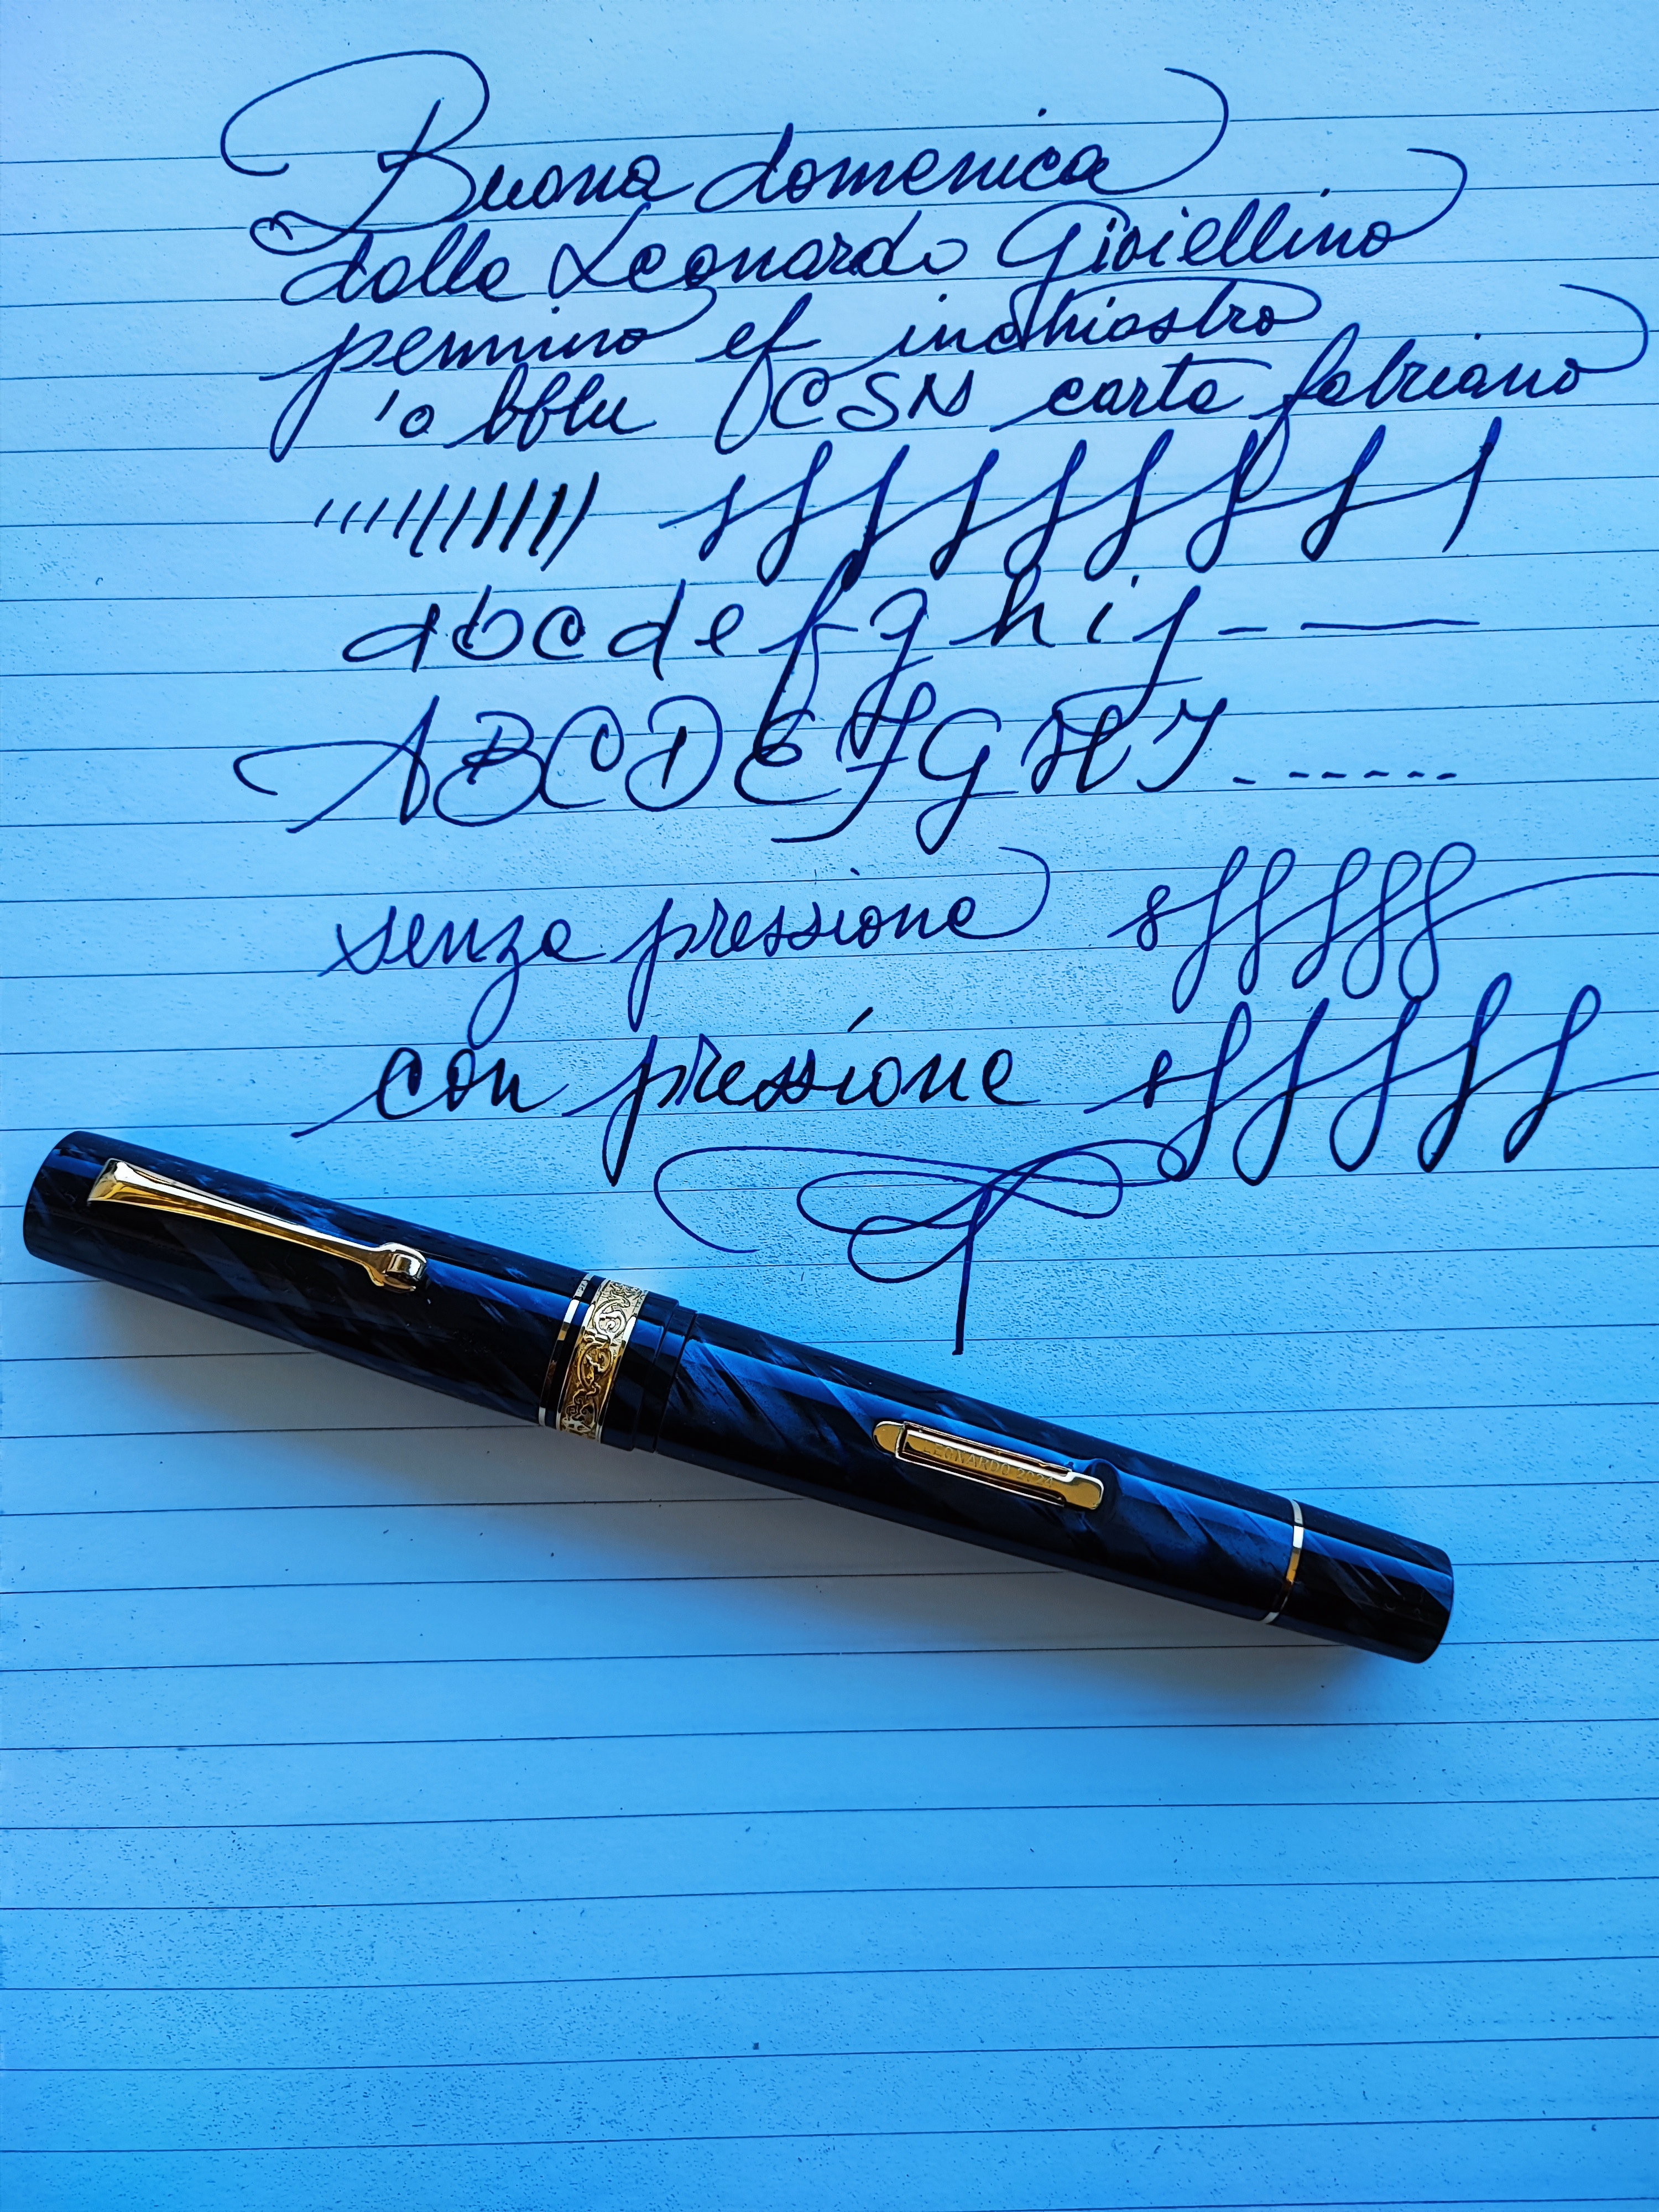 Buona domenica
dalla Leonardo Gioiellino
pennino ef inchiostro
'o bblu CSN carta fabriano
abcdefghij - —
ABCDEFGHI - - - - - - -
senza pressione
con pressione
LEONARDO 2024